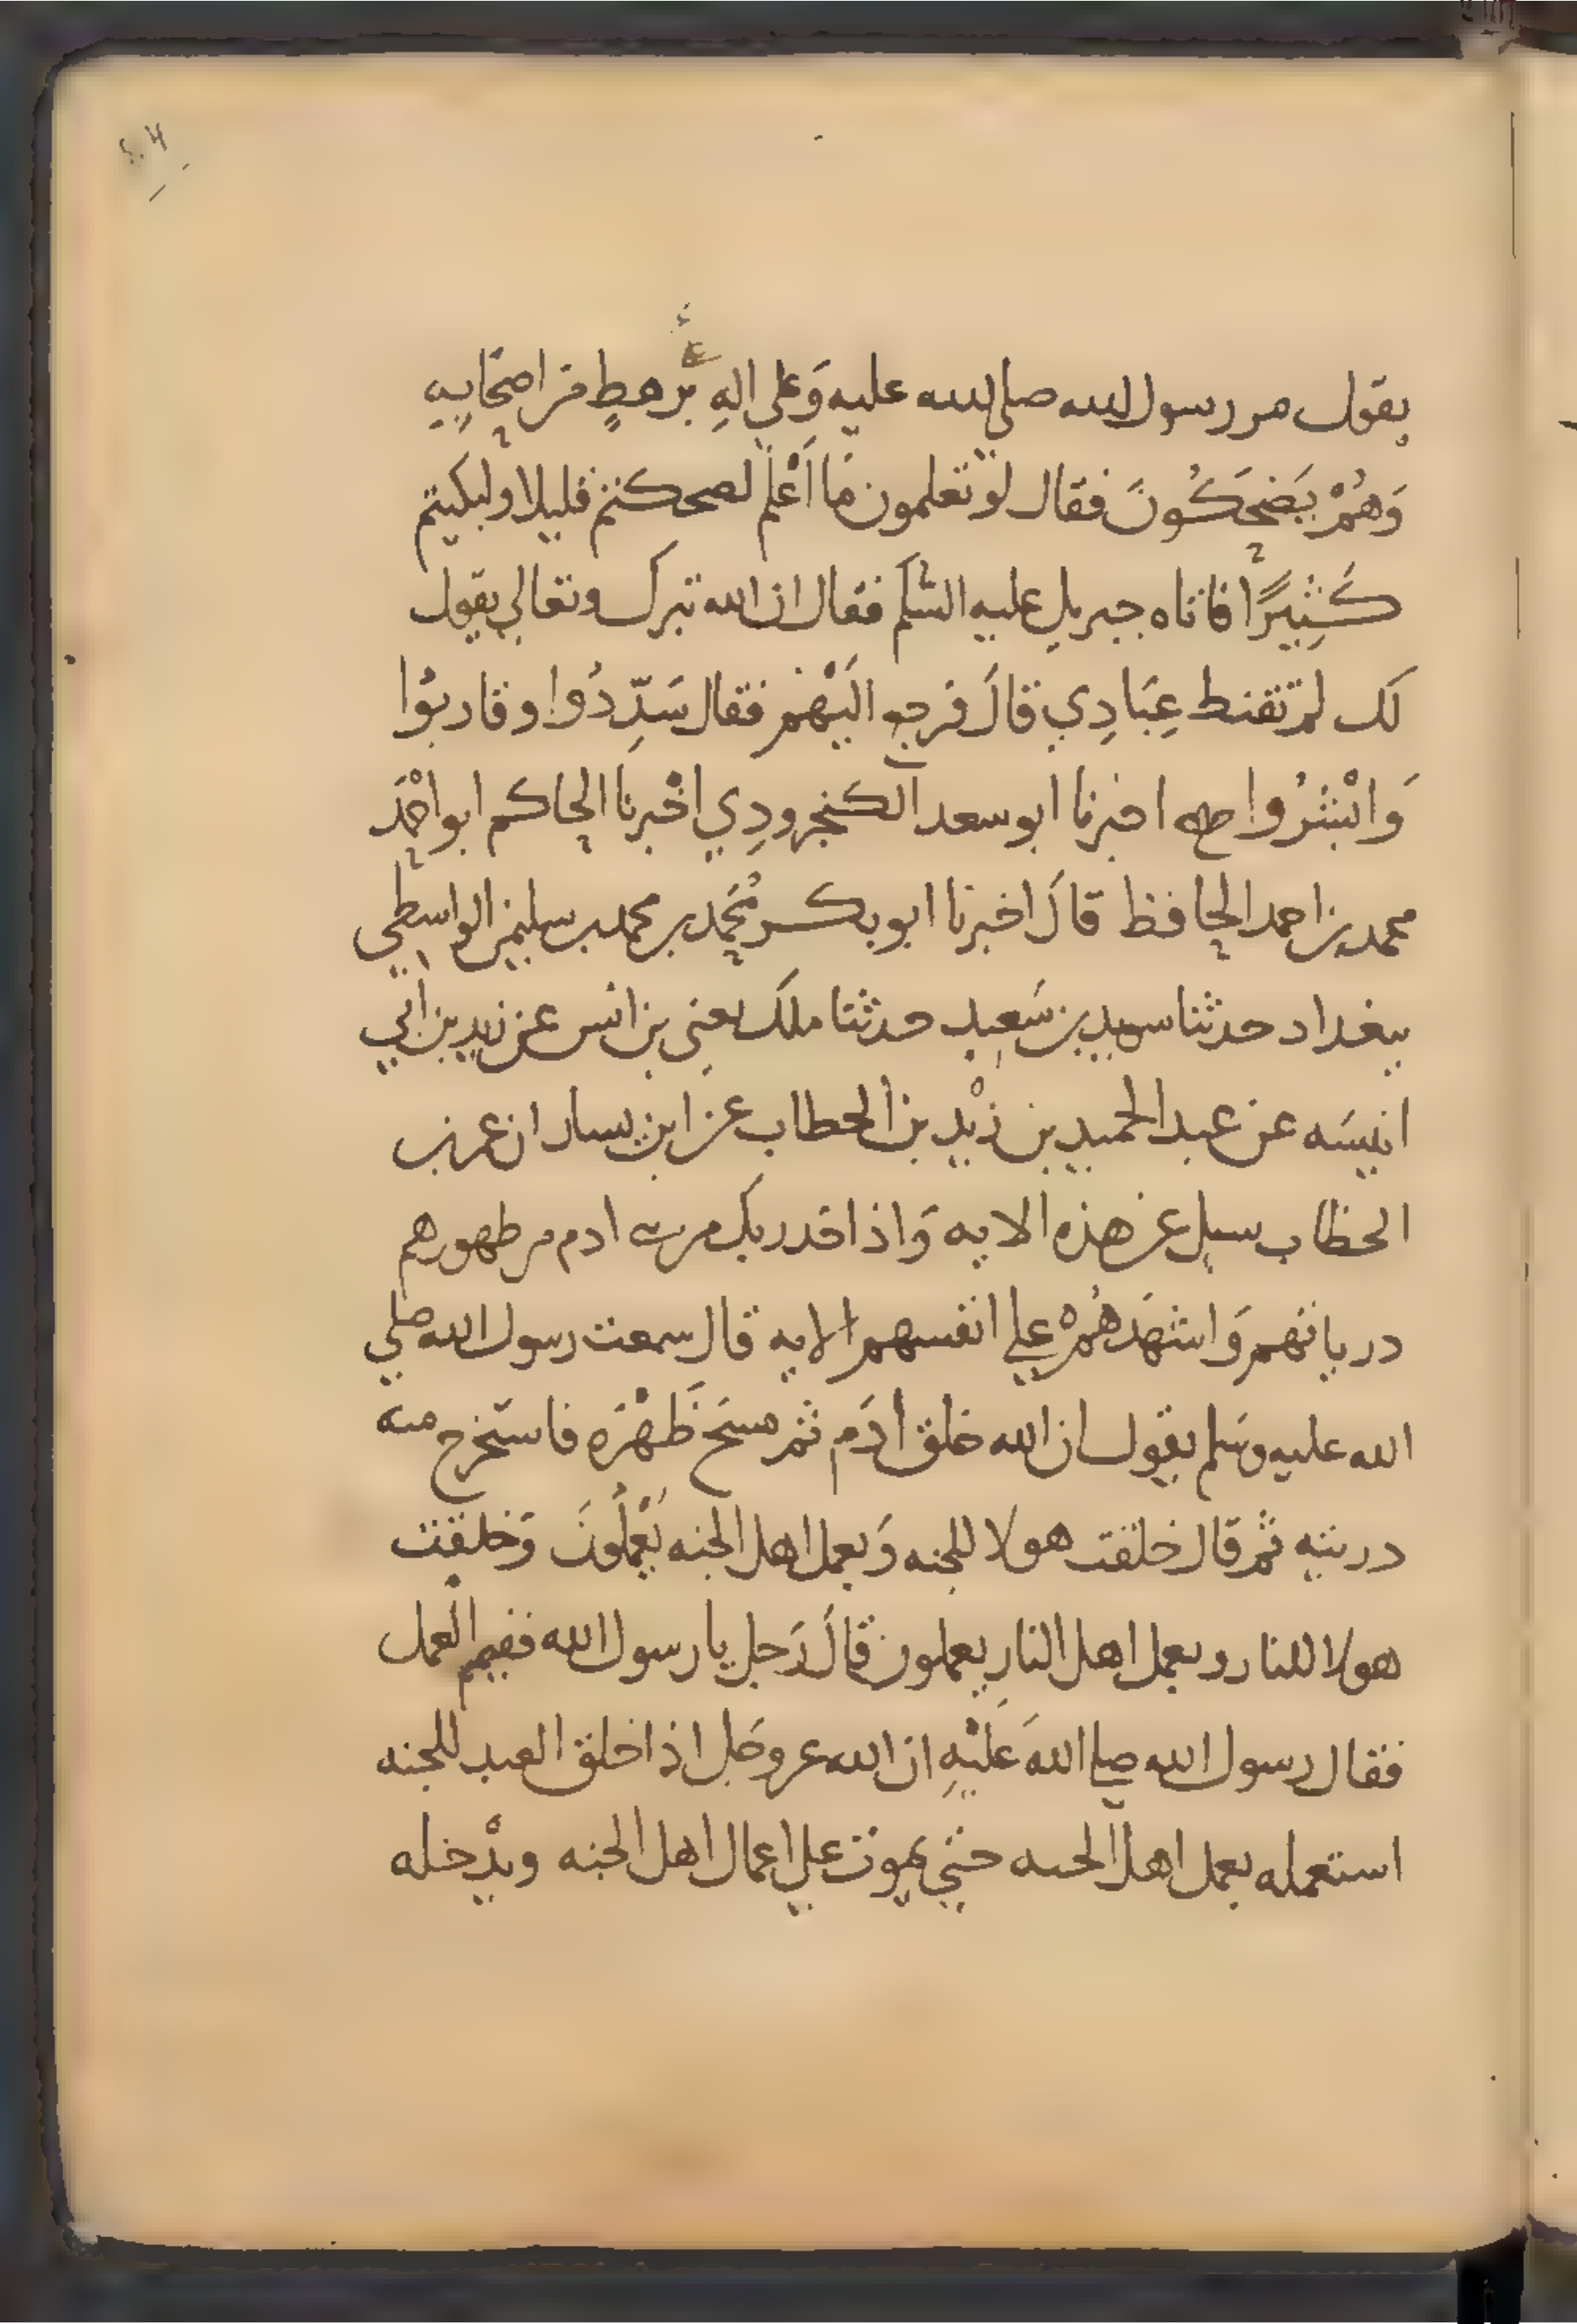 يقول مر رسول الله صلى الله عليه وَعلى الهِ برهطٍ من اصحَابِهِ
وَهُمْ يَضحَكُونَ فقال لو تعلمون مَا اَعْلم لضحكتم قليلا ولبكيتم
كَثِيرًا فاتاه جبريل عليه السّلم فقال ان الله تبرك وتعالي يقول
لَك لم تقنط عِبَادِي قالَ فرجع اليْهم فقال سَدِّدُوا وقاربُوا
وَابْشُرُوا صح اخبرنا ابو سعد الكنجرودِي اخْبرنا الحاكم ابو احْمَد
محمد بن احمد الحافظ قالَ اخبرنا ابو بكر مُحَمد بن محمد بن سليمن الواسطي
ببغداد حدثنا سويد بن سَعيد حدثنا ملك يعني بن انس عن زيد بن أبي
انيسَه عن عبد الحميد بن زيْد بن الخطاب عن ابن يسار ان عمر بن
الخطاب سيل عن هذه الايه وَاذ اخذ ربك من بني ادم من ظهورهم
درياتهم وَاشهَدَهُمْ علي انفسهم الايه قال سمعت رسول الله صلي
الله عليه وسَلم يقول ان الله خلق أدَم ثم مسَحَ ظَهْرَه فاستخرج منه
دريته ثم قال خلقت هولا للجنه وَبعمل اهل الجنه يَعْملُونَ وَخلقت
هولا للنار وبعمل اهل النارِ يعملون قالَ رَجل يا رسول الله ففيم العمل
فقال رسول الله صلي الله عَليْهِ ان الله عز وجَل اذا خلق العبد للجنه
استعمله بعمل اهل الجنه حتي يموت علي اعمال اهل الجنه ويدْخله